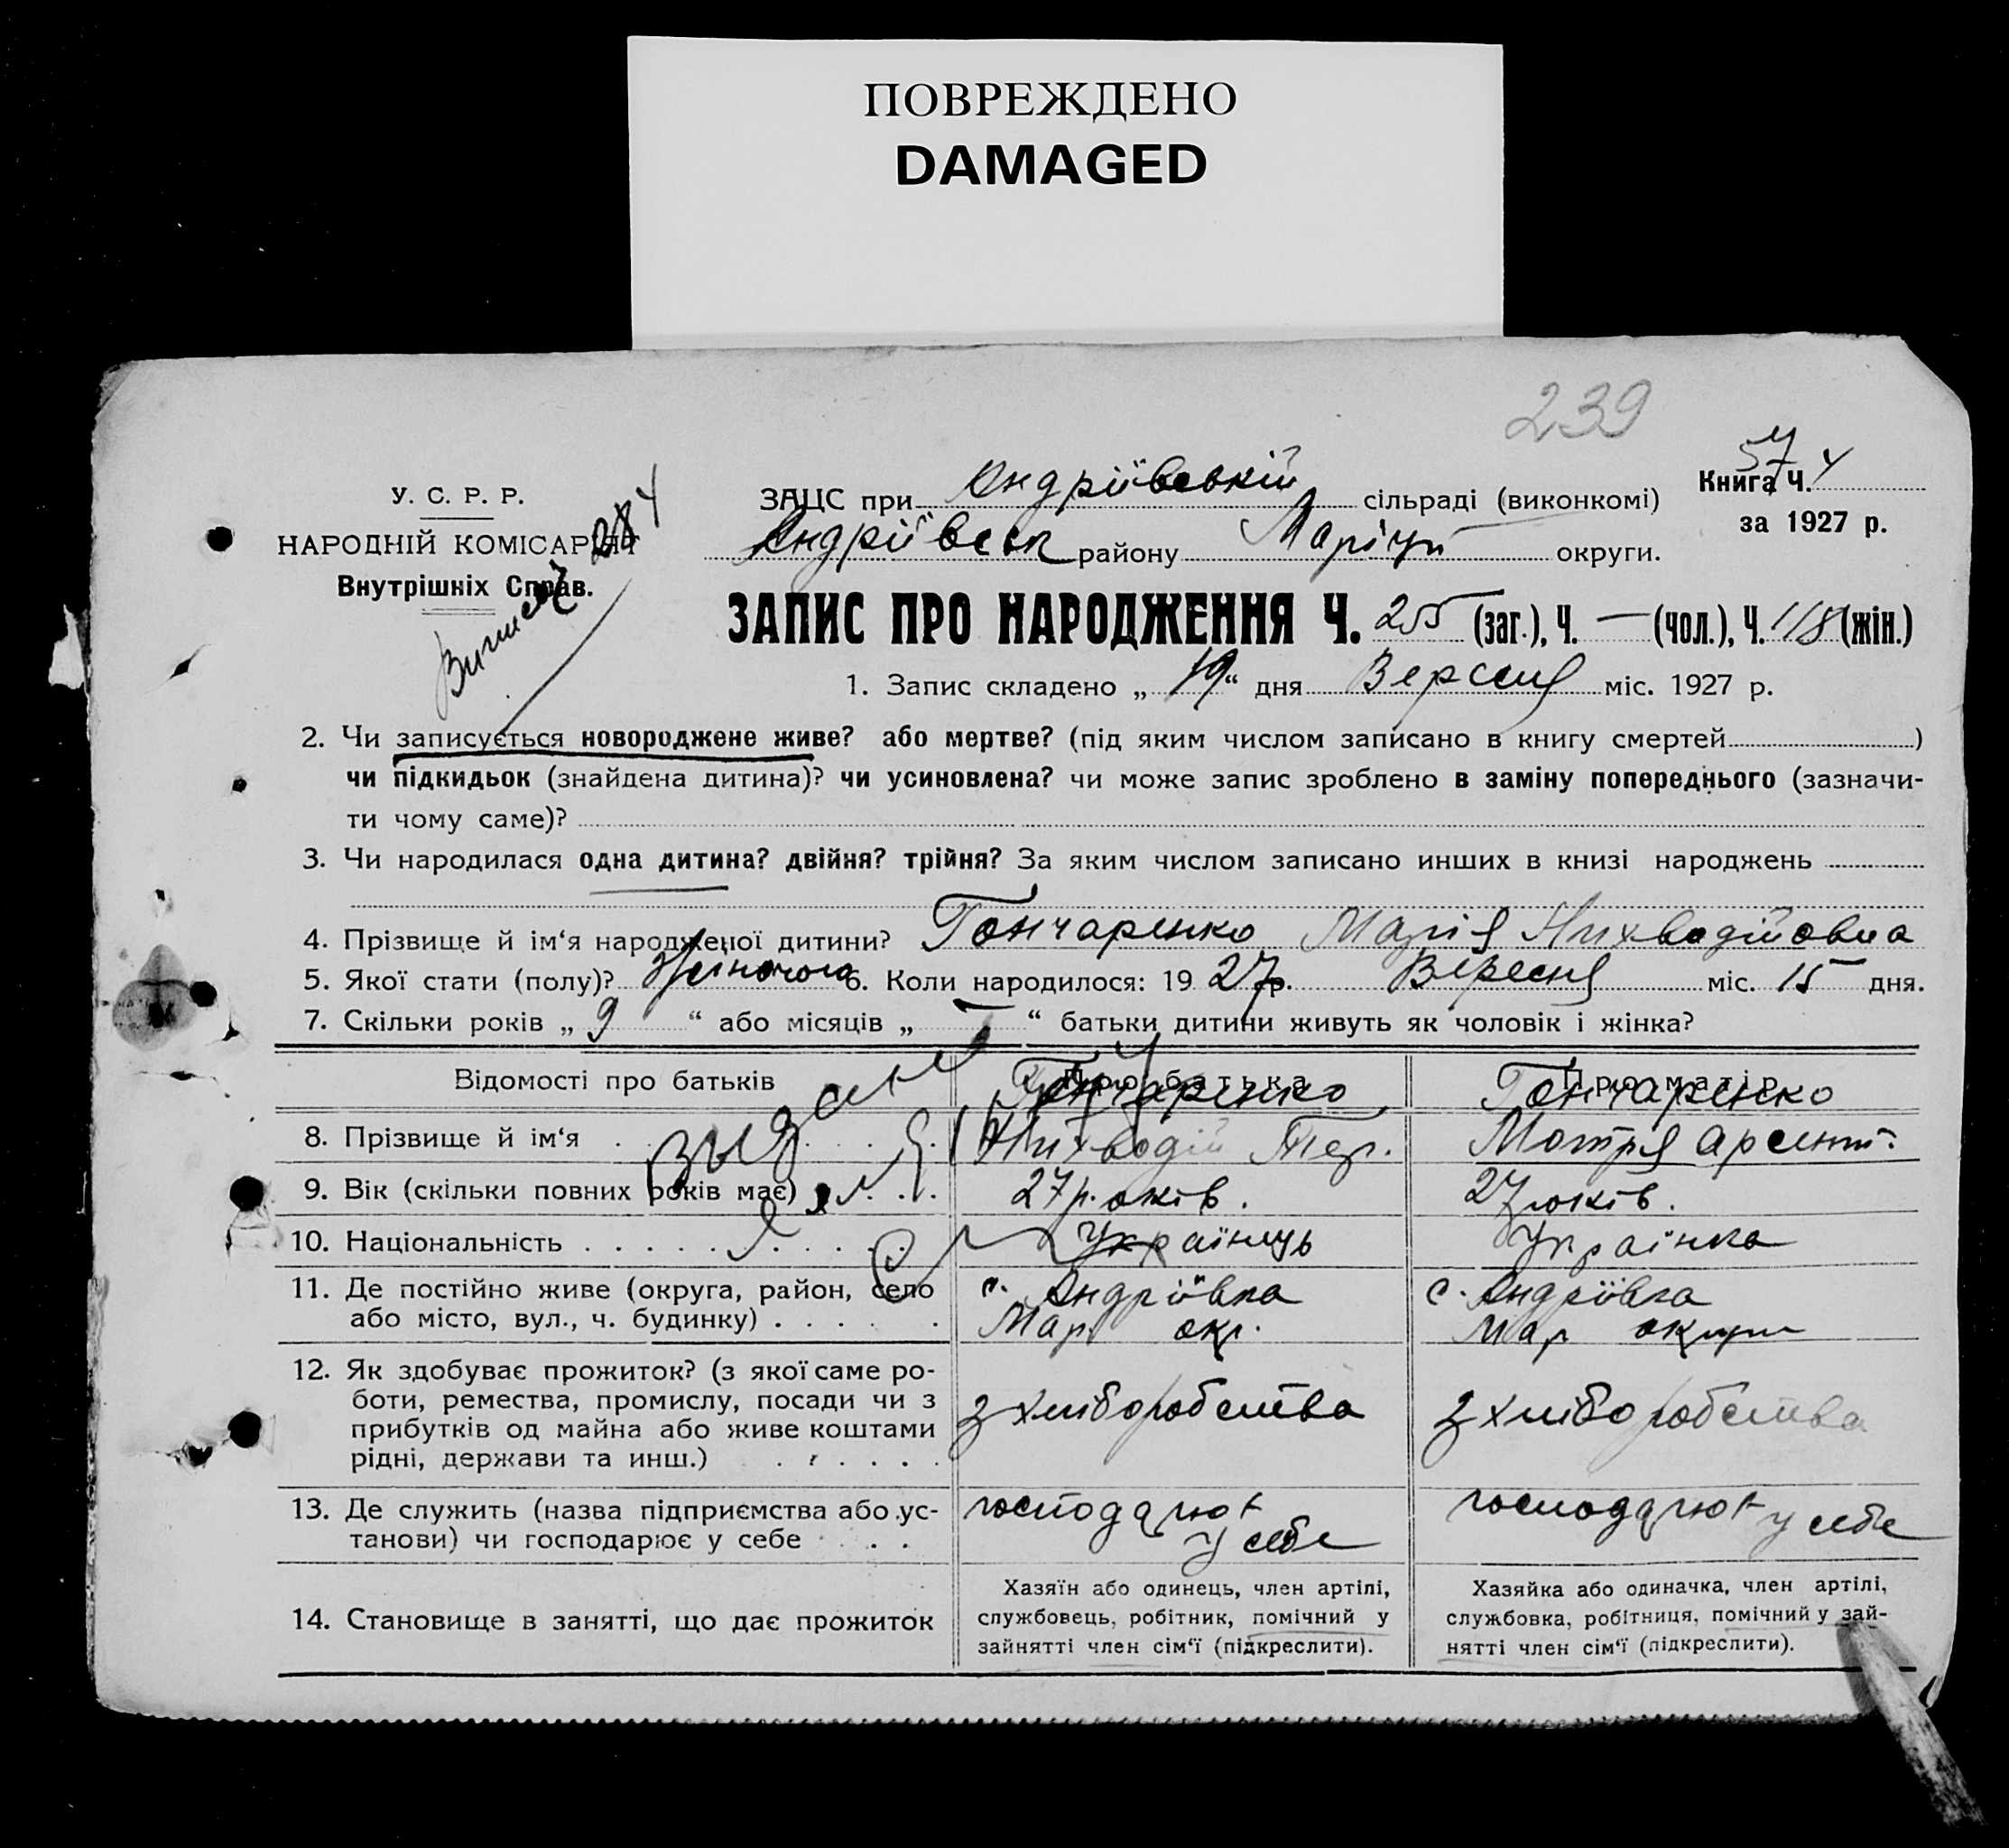 ПОВРЕЖДЕНО
DAMAGED
239
У. С. Р. Р.
НАРОДНІЙ КОМІСАРІЯТ
Внутрішніх Справ.
ЗАЦС при Андріївській сільраді (виконкомі)
Андріївськ району Маріуп округи.
Книга Ч. 4
за 1927 р.
ЗАПИС ПРО НАРОДЖЕННЯ Ч. 255 (заг.), Ч. — (чол.), Ч. 118 (жін.)
1. Запис складено „ 19 “ дня Вересня міс. 1927 р.
2. Чи записується новороджене живе? або мертве? (під яким числом записано в книгу смертей )
чи підкидьок (знайдена дитина)? чи усиновлена? чи може запис зроблено в заміну попереднього (зазначи-
ти чому саме)?
3. Чи народилася одна дитина? двійня? трійня? За яким числом записано инших в книзі народжень
4. Прізвище й ім‘я народженої дитини? Гончаренко Марія
5. Якої стати (полу)? Жіночого 6. Коли народилося: 19 27 р. Вересня міс. 15 дня.
7. Скільки років „ 9 “ або місяців „ — “ батьки дитини живуть як чоловік і жінка?
Відомості про батьків Про батька Про матір
Гончаренко Гончаренко
8. Прізвище й ім‘я Тер. Мотря Арсент.
9. Вік (скільки повних років має) 27 років. 27 років.
10. Національність Українць Українка
11. Де постійно живе (округа, район, село с. Андріївка с. Андріївка
або місто, вул., ч. будинку) Мар. окр. Мар округи
12. Як здобуває прожиток? (з якої саме ро-
боти, ремества, промислу, посади чи з з хліборобства з хліборобства
прибутків од майна або живе коштами
рідні, держави та инш.)
13. Де служить (назва підприємства або ус- господарют господарют у себе
танови) чи господарює у себе у себе
Хазяїн або одинець, член артілі, Хазяйка або одиначка, член артілі,
14. Становище в занятті, що дає прожиток службовець, робітник, помічний у службовка, робітниця, помічний у зай-
зайнятті член сім‘ї (підкреслити). нятті член сім‘ї (підкреслити).